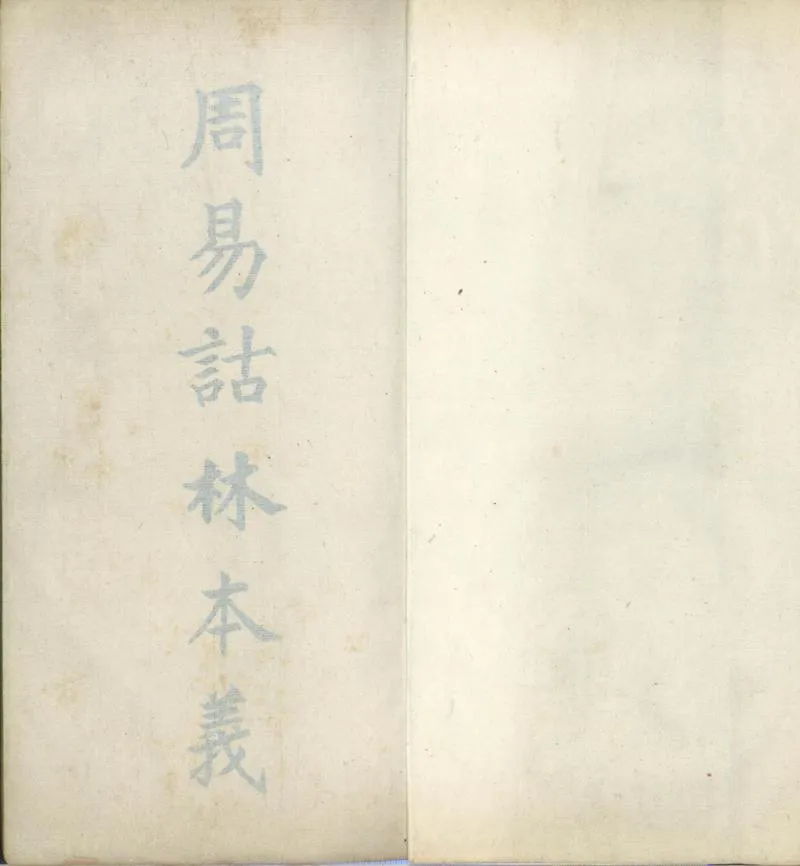 周易詁林本義